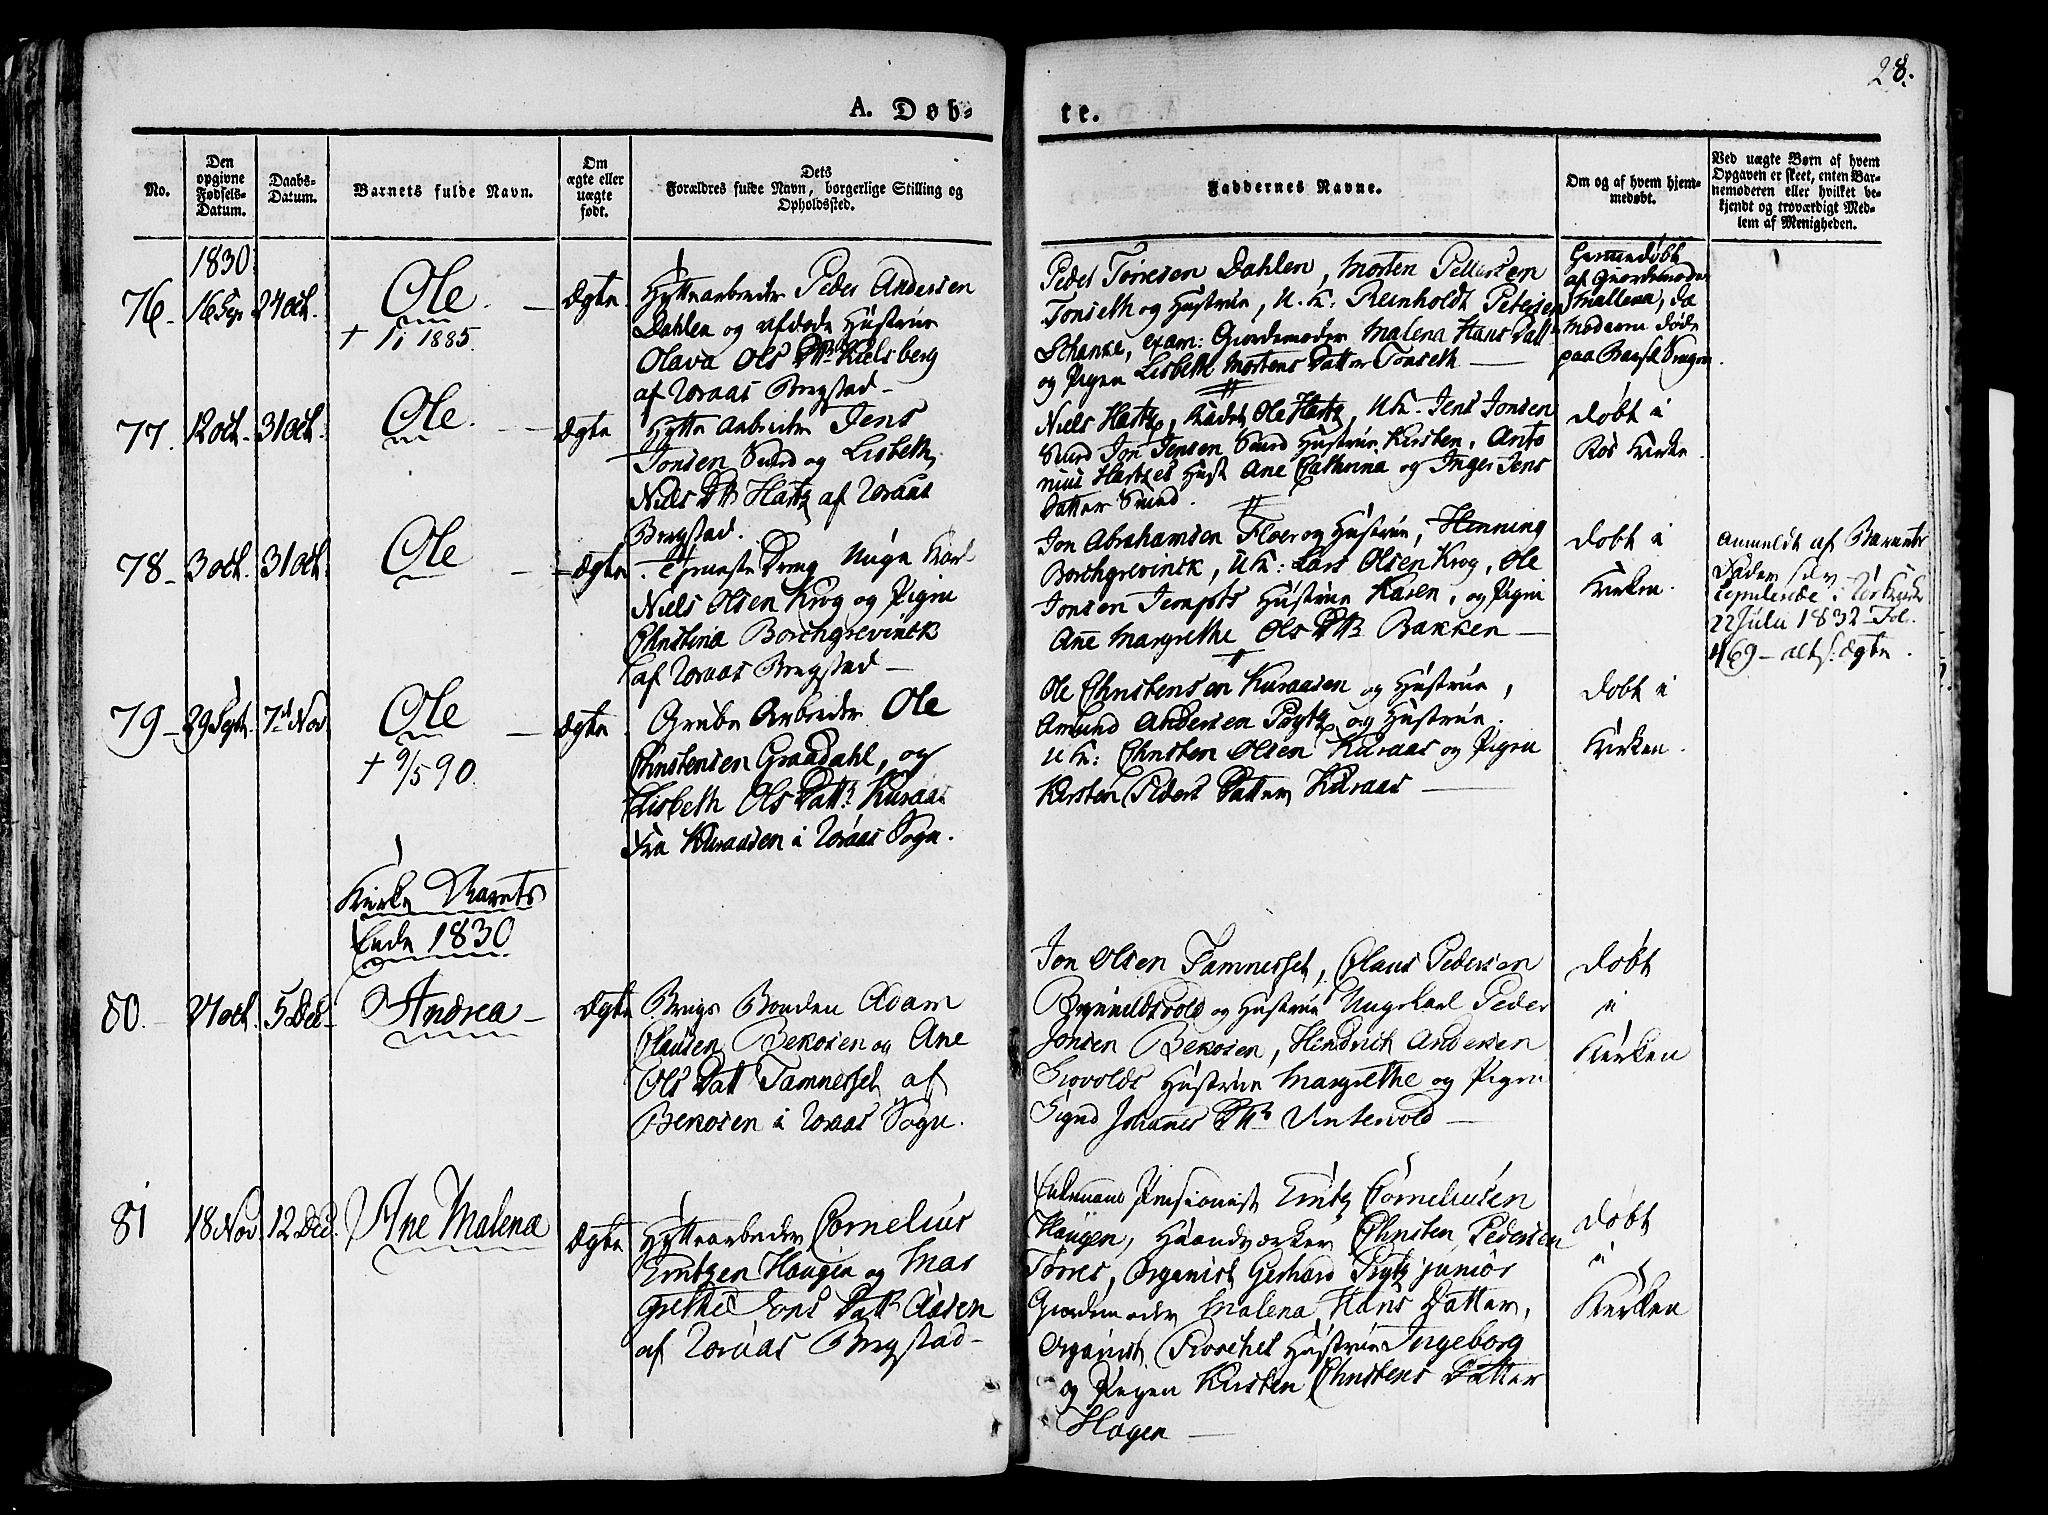 28.
A. Døb-
te.
No.
Den
opgivne
Fødsels-
Datum.
Daabs-
Datum.
Barnets fulde Navn.
Om
ægte eller
uægte
født.
Dets
Forældres fulde Navn, borgerlige Stilling og
Opholdssted.
Faddernes Navne.
Om og af hvem hjem-
medøbt.
Ved uægte Børn af hvem
Opgaven er skeet, enten Bar-
nemoderen eller hvilket be-
kjendt og troværdigt Med-
lem af Menigheden.
1830
76
16 Sep
24 Oct.
Ole
† 1/1 1885.
Ægte
Hyttearbeider Peder Andersen
Dahlen og afdøde Hustrue
Olava Ols Dtr Kielsberg
af Røraas Bergstad
Peder Tørresen Dahlen, Morten
Tonseth og Hustrue, U. K: Reinholdt Petersen
Schanke, exam: Giordemoder Malena Hans Datt
og Pigen Lisbeth Mortens Datter Tonseth
Hiemmedøbt
af Giordemoder
Mallena, da
Moderen døde
paa
77.
12 Oct.
31 Oct.
Ole
Ægte
Hytte Arbeider Jens
Jonsen Sund og Lisbeth
Niels Dtr Hartz af Røraas
Bergstad.
Niels Hartz, Ole Hartz, U.K. Jens Jonsen
Sund Jon Jensen Sund Hustrue Kirsten, Anto
nius Hartzes Hust Ane Cathrina og Inger Jens
Datter Sund.
Døbt i
Røs Kirke
78
3 Oct.
31 Oct.
Ole
Ægte
Tieneste Dreng Unge Karl
Niels Olsen Krog og Pigen
Christina Borchgrevinck
af Røraas Bergstad
Jon Abrahamsen Floer og Hustrue, Henning
Borchgrevinck, U K: Lars Olsen Krog, Ole
Jonsen Hustrue Karen, og Pigen
Ane Margrethe Ols Dtr Bakken
Døbt i
Kirken.
Anmeldt af Barnets
Fader selv
Copulerede i Røs Kirke
22 Julii 1832 Fol.
169 - alts. Ægte
79
29 Sept.
7d Nov.
Ole
† 9/5 90.
Ægte
Grube Arbeider Ole
Christensen Graadahl, og
Lisbeth Ols Datt. Kuraas
fra Kuraasen i Røraas Sogn.
Ole Christensen Kuraasen og Hustrue,
Amund Andersen Prytz og Hustrue.
U K: Christen Olsen Kuraas og Pigen
Kirsten Peders Datter Kuraas
Døbt i
Kirken.
Kirke Aarets
Ende 1830
80.
24 Oct.
5 Dec.
Andrea
Ægte
Brugs Bonden Adam
Clausen Bekosen og Ane
Ols Datt Tamneset af
Bekosen i Røraas Sogn.
Jon Olsen Tamneset, Claus Pedersen
Brynildsvold og Hustrue Ungekarl Peder
Jonsen Bekosen, Hindrich Andersen
Hustrue Margrethe og Pigen
Signe Johannes Dtr Vintervold
Døbt
i
Kirken
81
18 Nov
12 Dec.
Ane Malena
Ægte
Hyttearbeider Cornelius
Erntzen Haugen og Mar
grethe Jons Datt Aasen
af Røraas Bergstad
Pensionist Erntz Cornelusen
Haugen, Haandværker Christen Pedersen
Tørres, Organist Gerhard Prytz junior
Giordemoder Malena Hans Datter,
Organist Roschel Hustrue Ingeborg
og Pigen Kirsten Christens Datter
Hagen
Døbt
i
Kirken